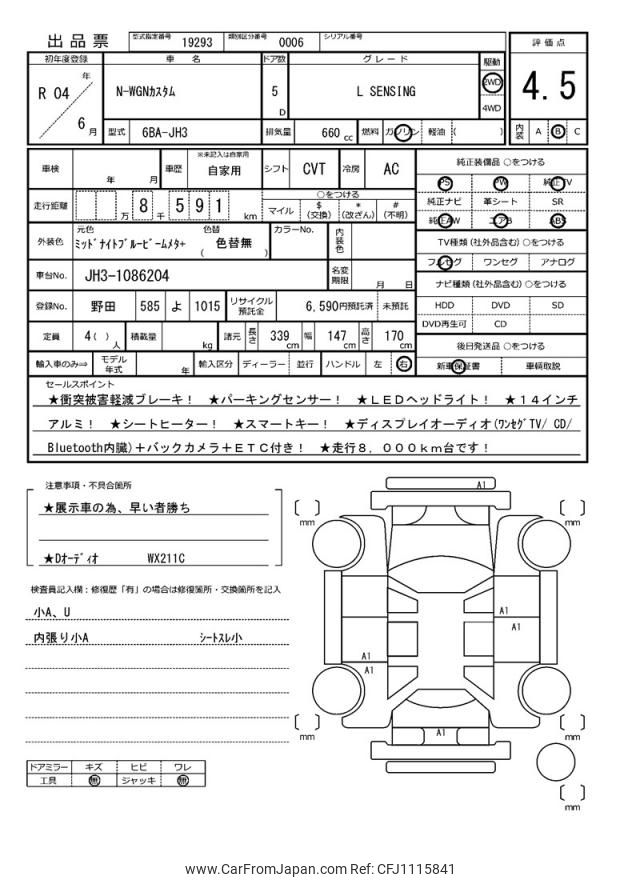 出品票 型式指定番号 19293 類別区分番号 0006 シリアル番号
評価点
4.5
内装 A B C
初年度登録 車名 ドア数 グレード 駆動
R 04 年 6 月
N-WGNカスタム 5 D L SENSING 2WD 4WD
型式 6BA-JH3 排気量 660 cc 燃料 ガソリン 軽油 ( )
車検 年 月 車歴 ※未記入は自家用 自家用 シフト CVT 冷房 AC
純正装備品 ○をつける
PS PW 純正TV
純正ナビ 革シート SR
純正AW エアB ABS
走行距離 万 8 千 5 9 1 km
○をつける
マイル $(交換) *(改ざん) #(不明)
外装色 元色 ミッドナイトブルービームメタ+ 色替 ( 色替無 ) カラーNo. 内装色
TV種類 (社外品含む) ○をつける
フルセグ ワンセグ アナログ
車台No. JH3-1086204 名変期限 月 日
ナビ種類 (社外品含む) ○をつける
HDD DVD SD
DVD再生可 CD
登録No. 野田 585 よ 1015 リサイクル預託金 6,590円預託済 未預託
定員 4( ) 人 積載量 kg 諸元 長さ 339 cm 幅 147 cm 高さ 170 cm
後日発送品 ○をつける
新車保証書 車輌取説
輸入車のみ⇒ モデル年式 年 輸入区分 ディーラー 並行 ハンドル 左 右
セールスポイント
★衝突被害軽減ブレーキ! ★パーキングセンサー! ★LEDヘッドライト! ★14インチ
アルミ! ★シートヒーター! ★スマートキー! ★ディスプレイオーディオ(ワンセグTV/ CD/
Bluetooth内臓)+バックカメラ+ETC付き! ★走行8,000km台です!
注意事項・不具合箇所
★展示車の為、早い者勝ち
★Dオーディオ WX211C
検査員記入欄:修復歴「有」の場合は修復箇所・交換箇所を記入
小A、U
内張り小A シートスレ小
ドアミラー キズ ヒビ ワレ
工具 無 ジャッキ 無
A1
mm
mm
A1
A1
A1
A1
A1
mm
mm
mm
www.CarFromJapan.com Ref: CFJ1115841